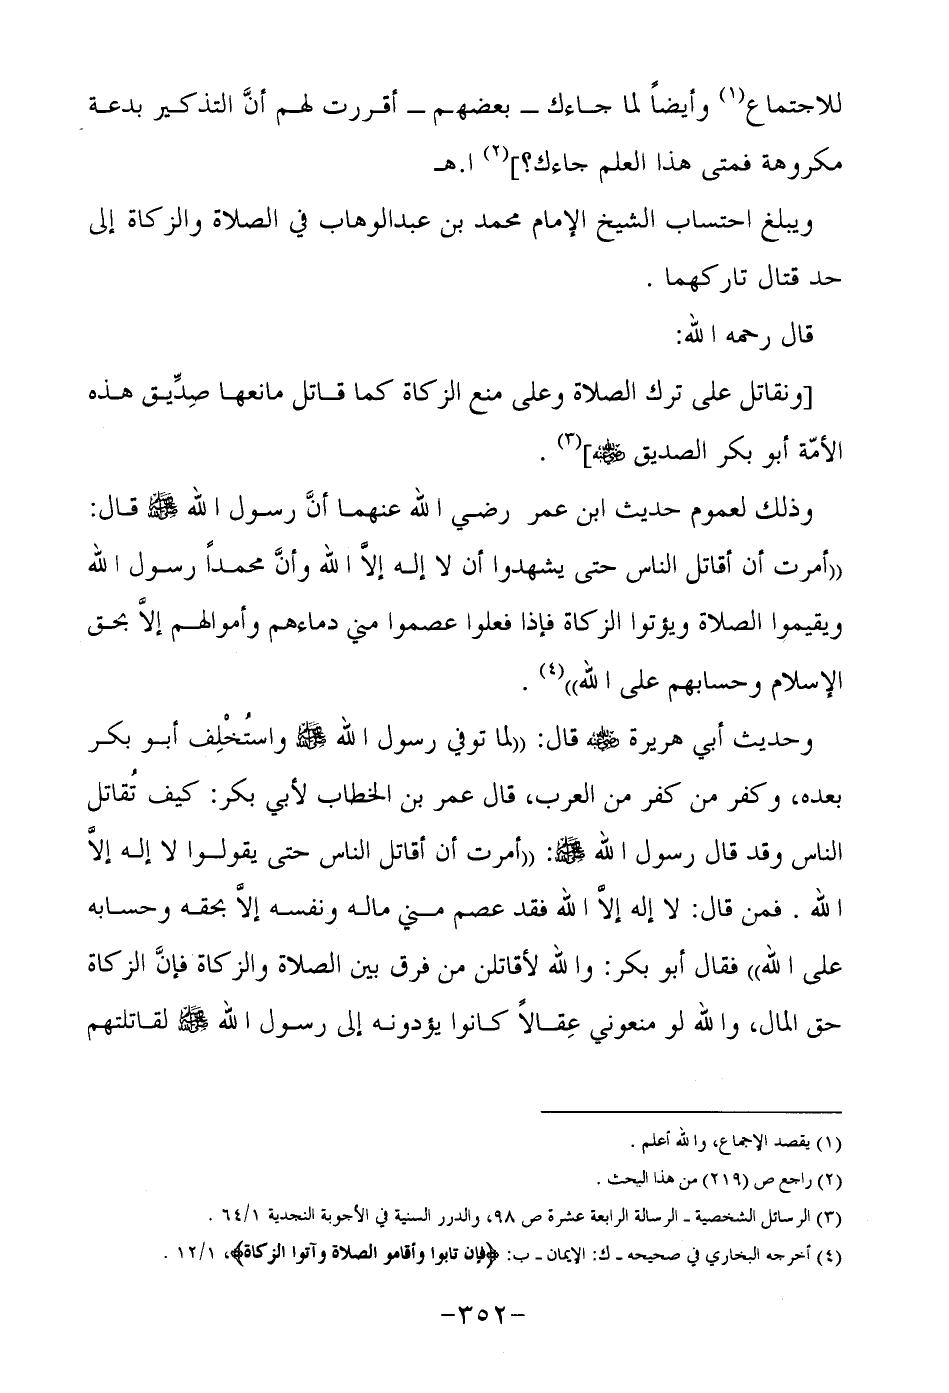 للاجتماع(١) وأيضاً لما جاءك ـ بعضهم ـ أقررت لهم أنَّ التذكير بدعة
مكروهة فمتى هذا العلم جاءك؟](٢) ا.هـ
ويبلغ احتساب الشيخ الإمام محمد بن عبدالوهاب في الصلاة والزكاة إلى
حد قتال تاركهما .
قال رحمه الله:
[ونقاتل على ترك الصلاة وعلى منع الزكاة كما قاتل مانعها صِدِّيق هذه
الأمّة أبو بكر الصديق ﵁](٣) .
وذلك لعموم حديث ابن عمر رضي الله عنهما أنَّ رسول الله ﷺ قال:
((أمرت أن أقاتل الناس حتى يشهدوا أن لا إله إلاَّ الله وأنَّ محمداً رسول الله
ويقيموا الصلاة ويؤتوا الزكاة فإذا فعلوا عصموا مني دماءهم وأموالهم إلاَّ بحق
الإسلام وحسابهم على الله))(٤) .
وحديث أبي هريرة ﵁ قال: ((لما توفي رسول الله ﷺ واستُخْلِف أبو بكر
بعده، وكفر من كفر من العرب، قال عمر بن الخطاب لأبي بكر: كيف تُقاتل
الناس وقد قال رسول الله ﷺ: ((أمرت أن أقاتل الناس حتى يقولوا لا إله إلاَّ
الله . فمن قال: لا إله إلاَّ الله فقد عصم مني ماله ونفسه إلاَّ بحقه وحسابه
على الله)) فقال أبو بكر: والله لأقاتلن من فرق بين الصلاة والزكاة فإنَّ الزكاة
حق المال، والله لو منعوني عِقالاً كانوا يؤدونه إلى رسول الله ﷺ لقاتلتهم
(١) يقصد الإجماع، والله أعلم .
(٢) راجع ص (٢١٩) من هذا البحث .
(٣) الرسائل الشخصية ـ الرسالة الرابعة عشرة ص ٩٨، والدرر السنية في الأجوبة النجدية ٦٤/١ .
(٤) أخرجه البخاري في صحيحه ـ ك: الإيمان ـ ب: ﴿فإن تابوا وأقامو الصلاة وآتوا الزكاة﴾، ١٢/١ .
-٣٥٢-